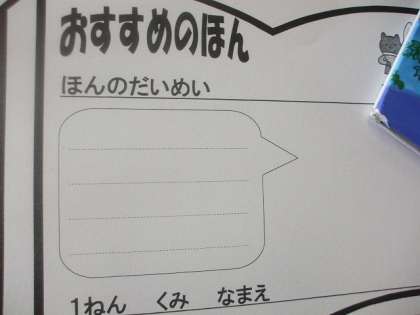 おすすめのほん
ほんのだいめい
1ねん くみ なまえ